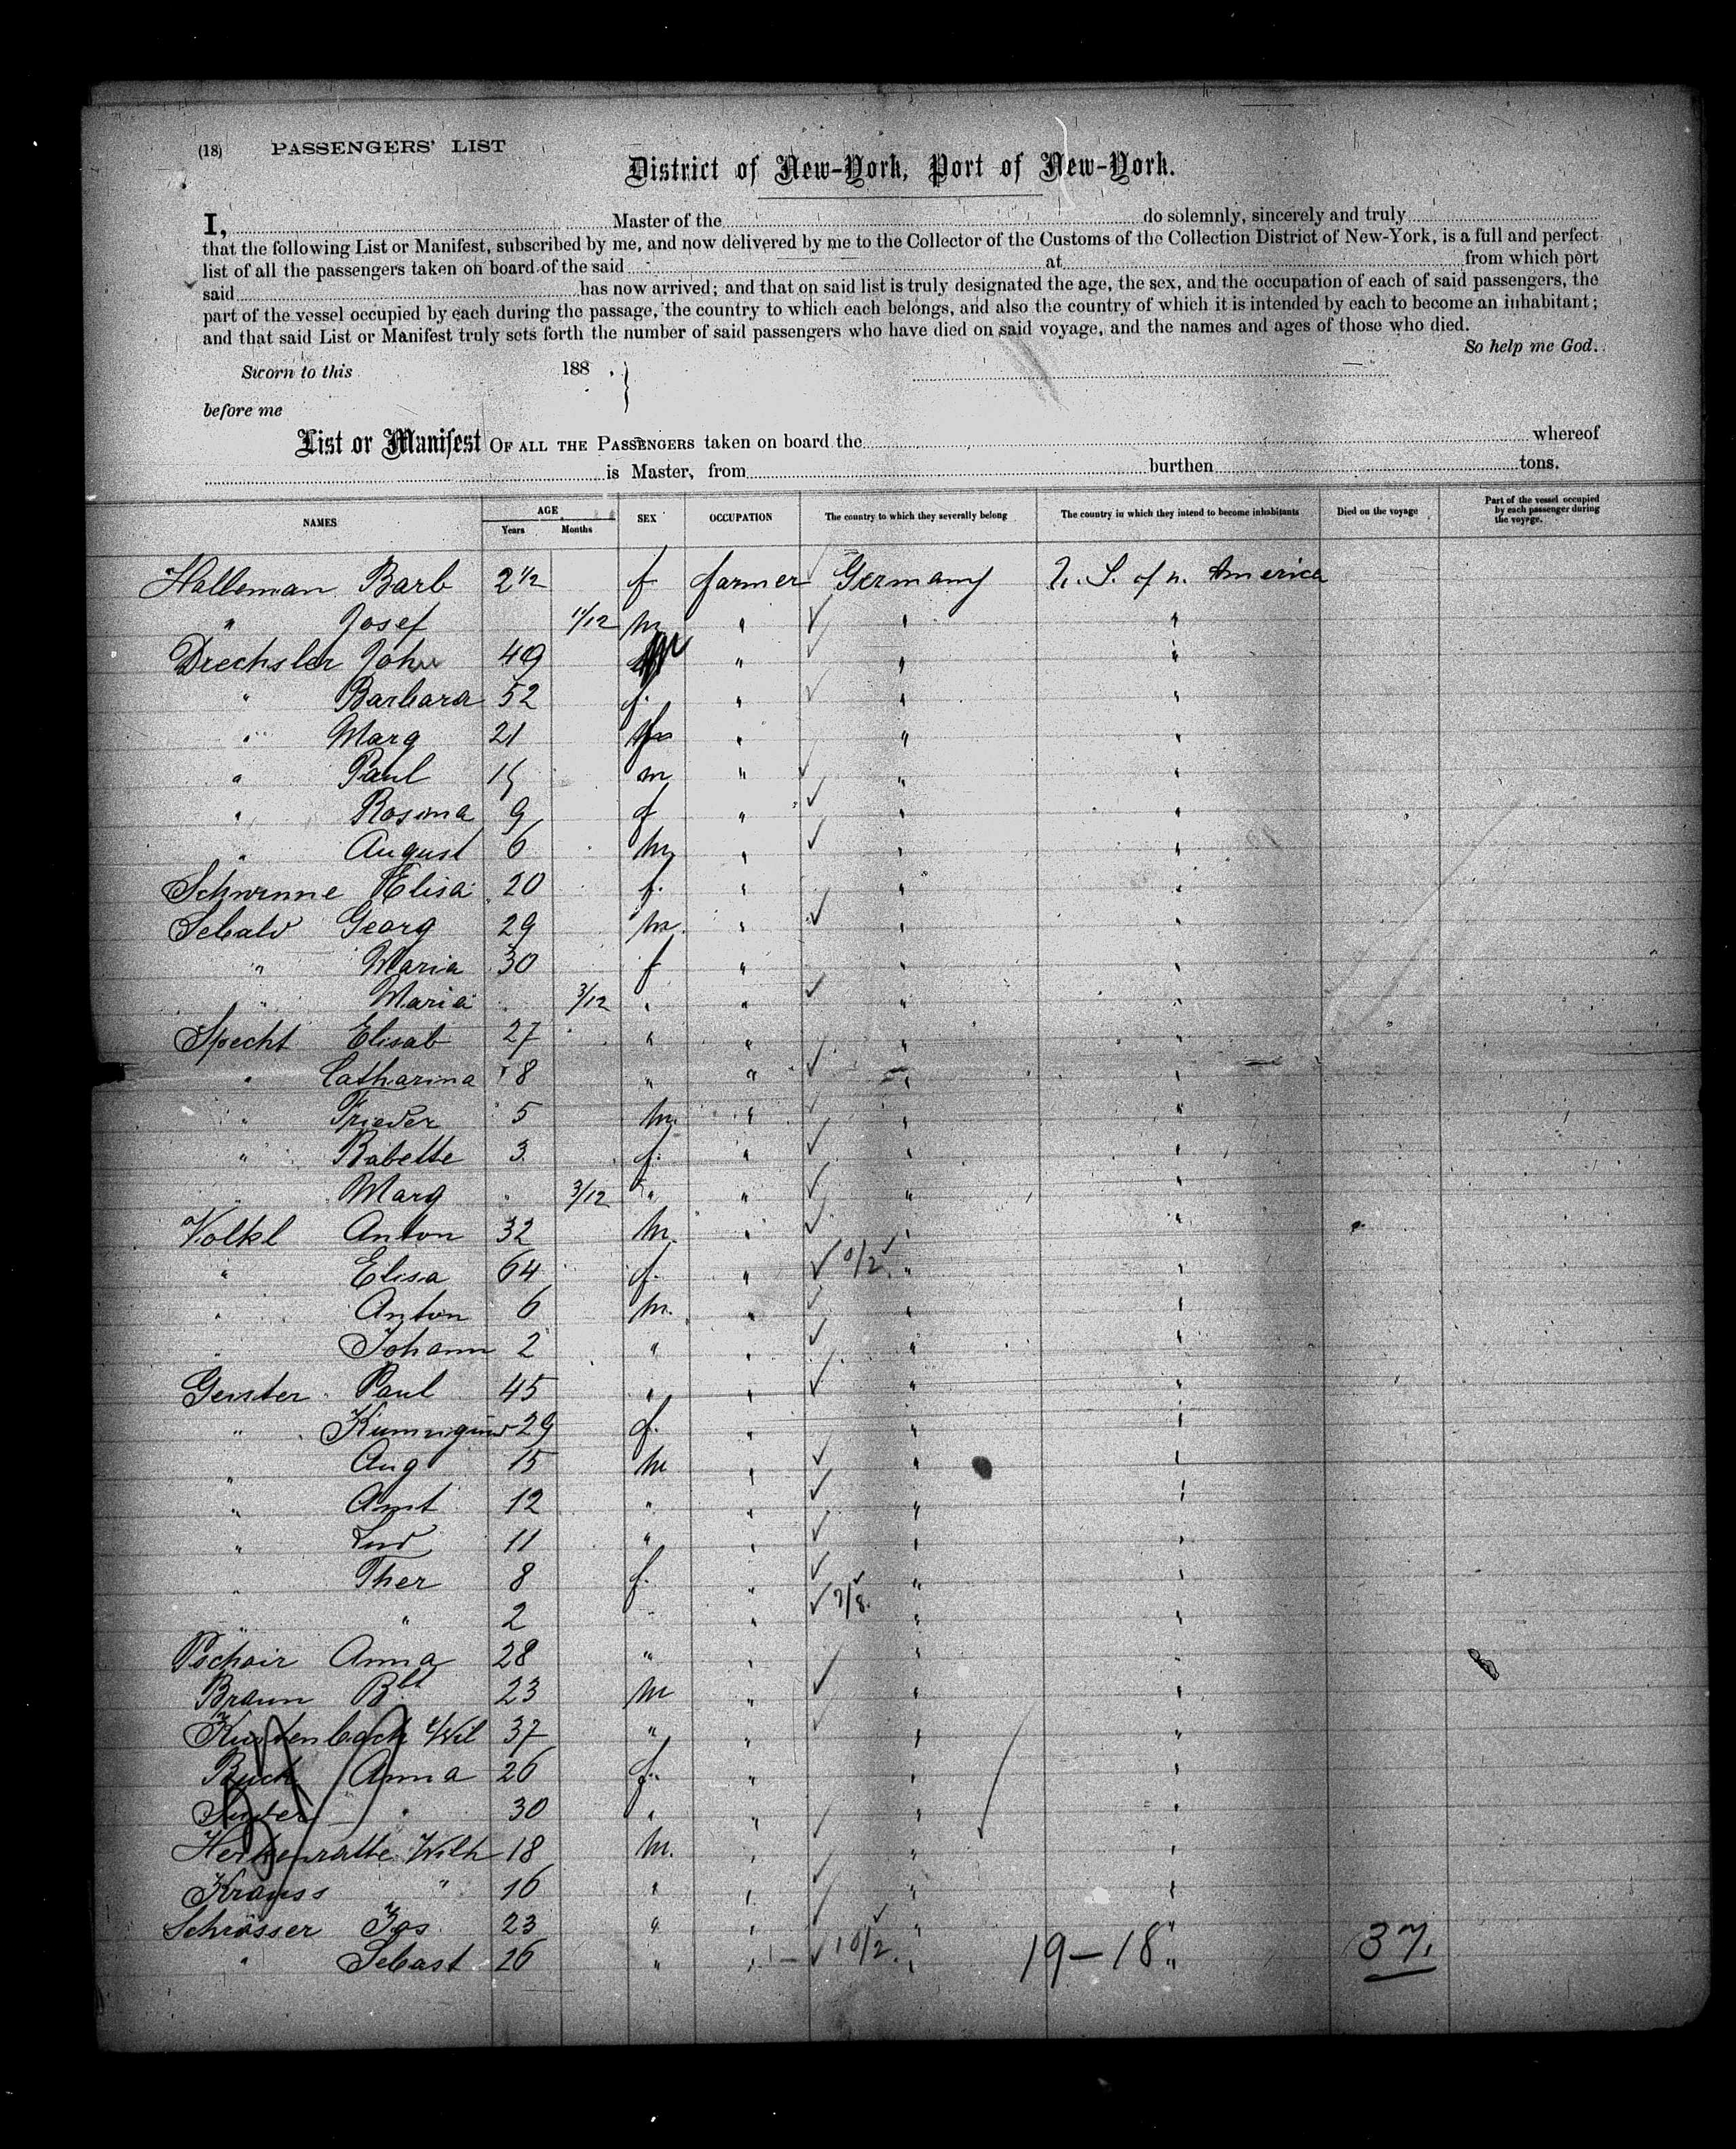 (18) PASSENGERS' LIST
District of New-York, Port of New-York.
I, Master of the do solemnly, sincerely and truly
that the following List or Manifest, subscribed by me, and now delivered by me to the Collector of the Customs of the Collection District of New-York, is a full and perfect
list of all the passengers taken on board of the said at from which port
said has now arrived; and that on said list is truly designated the age, the sex, and the occupation of each of said passengers, the
part of the vessel occupied by each during the passage, the country to which each belongs, and also the country of which it is intended by each to become an inhabitant;
and that said List or Manifest truly sets forth the number of said passengers who have died on said voyage, and the names and ages of those who died.
So help me God.
Sworn to this 188 .
before me
List or Manifest OF ALL THE PASSENGERS taken on board the whereof
is Master, from burthen tons.
NAMES AGE Years Months SEX OCCUPATION The country to which they severally belong The country in which they intend to become inhabitants Died on the voyage Part of the vessel occupied by each passenger during the voyage.
Halleman Barb 2 1/2 f. farmer Germany U. S. of n. America
" Josef 11/12 m " " "
Drechsler John 49 m " " "
" Barbara 52 f. " " "
" Marg 21 f " " "
" Paul 15 m " " "
" Rosina 9 f " " "
" August 6 m " " "
Schwinne Elisa 20 f. " " "
Sebald Georg 29 m. " " "
" Maria 30 f " " "
" Maria 3/12 " " " "
Specht Elisab 27 " " " "
" Catharina 8 " " " "
" Frieder 5 m. " " "
" Babette 3 f. " " "
" Marg 3/12 " " " "
Volkl Anton 32 m. " " "
" Elisa 64 f. " 0/2 " "
" Anton 6 m. " " "
" Johann 2 " " " "
Geister Paul 45 " " " "
" Kunnigund 29 f. " " "
" Aug 15 m " " "
" Amt 12 " " " "
" Lud 11 " " " "
" Ther 8 f. " " "
" " 2 " " 7/8. " "
Pschair Anna 28 " " " "
Braun Blt 23 m " " "
Kustenbach Wil 37 " " " "
Buck Anna 26 f. " " "
" 30 " " " "
Herkenratte Wilh 18 m. " " "
Krauss " 16 " " " "
Schrösser Jos 23 " " " "
" Sebast 26 " " 10/2. " 19-18 " 37.